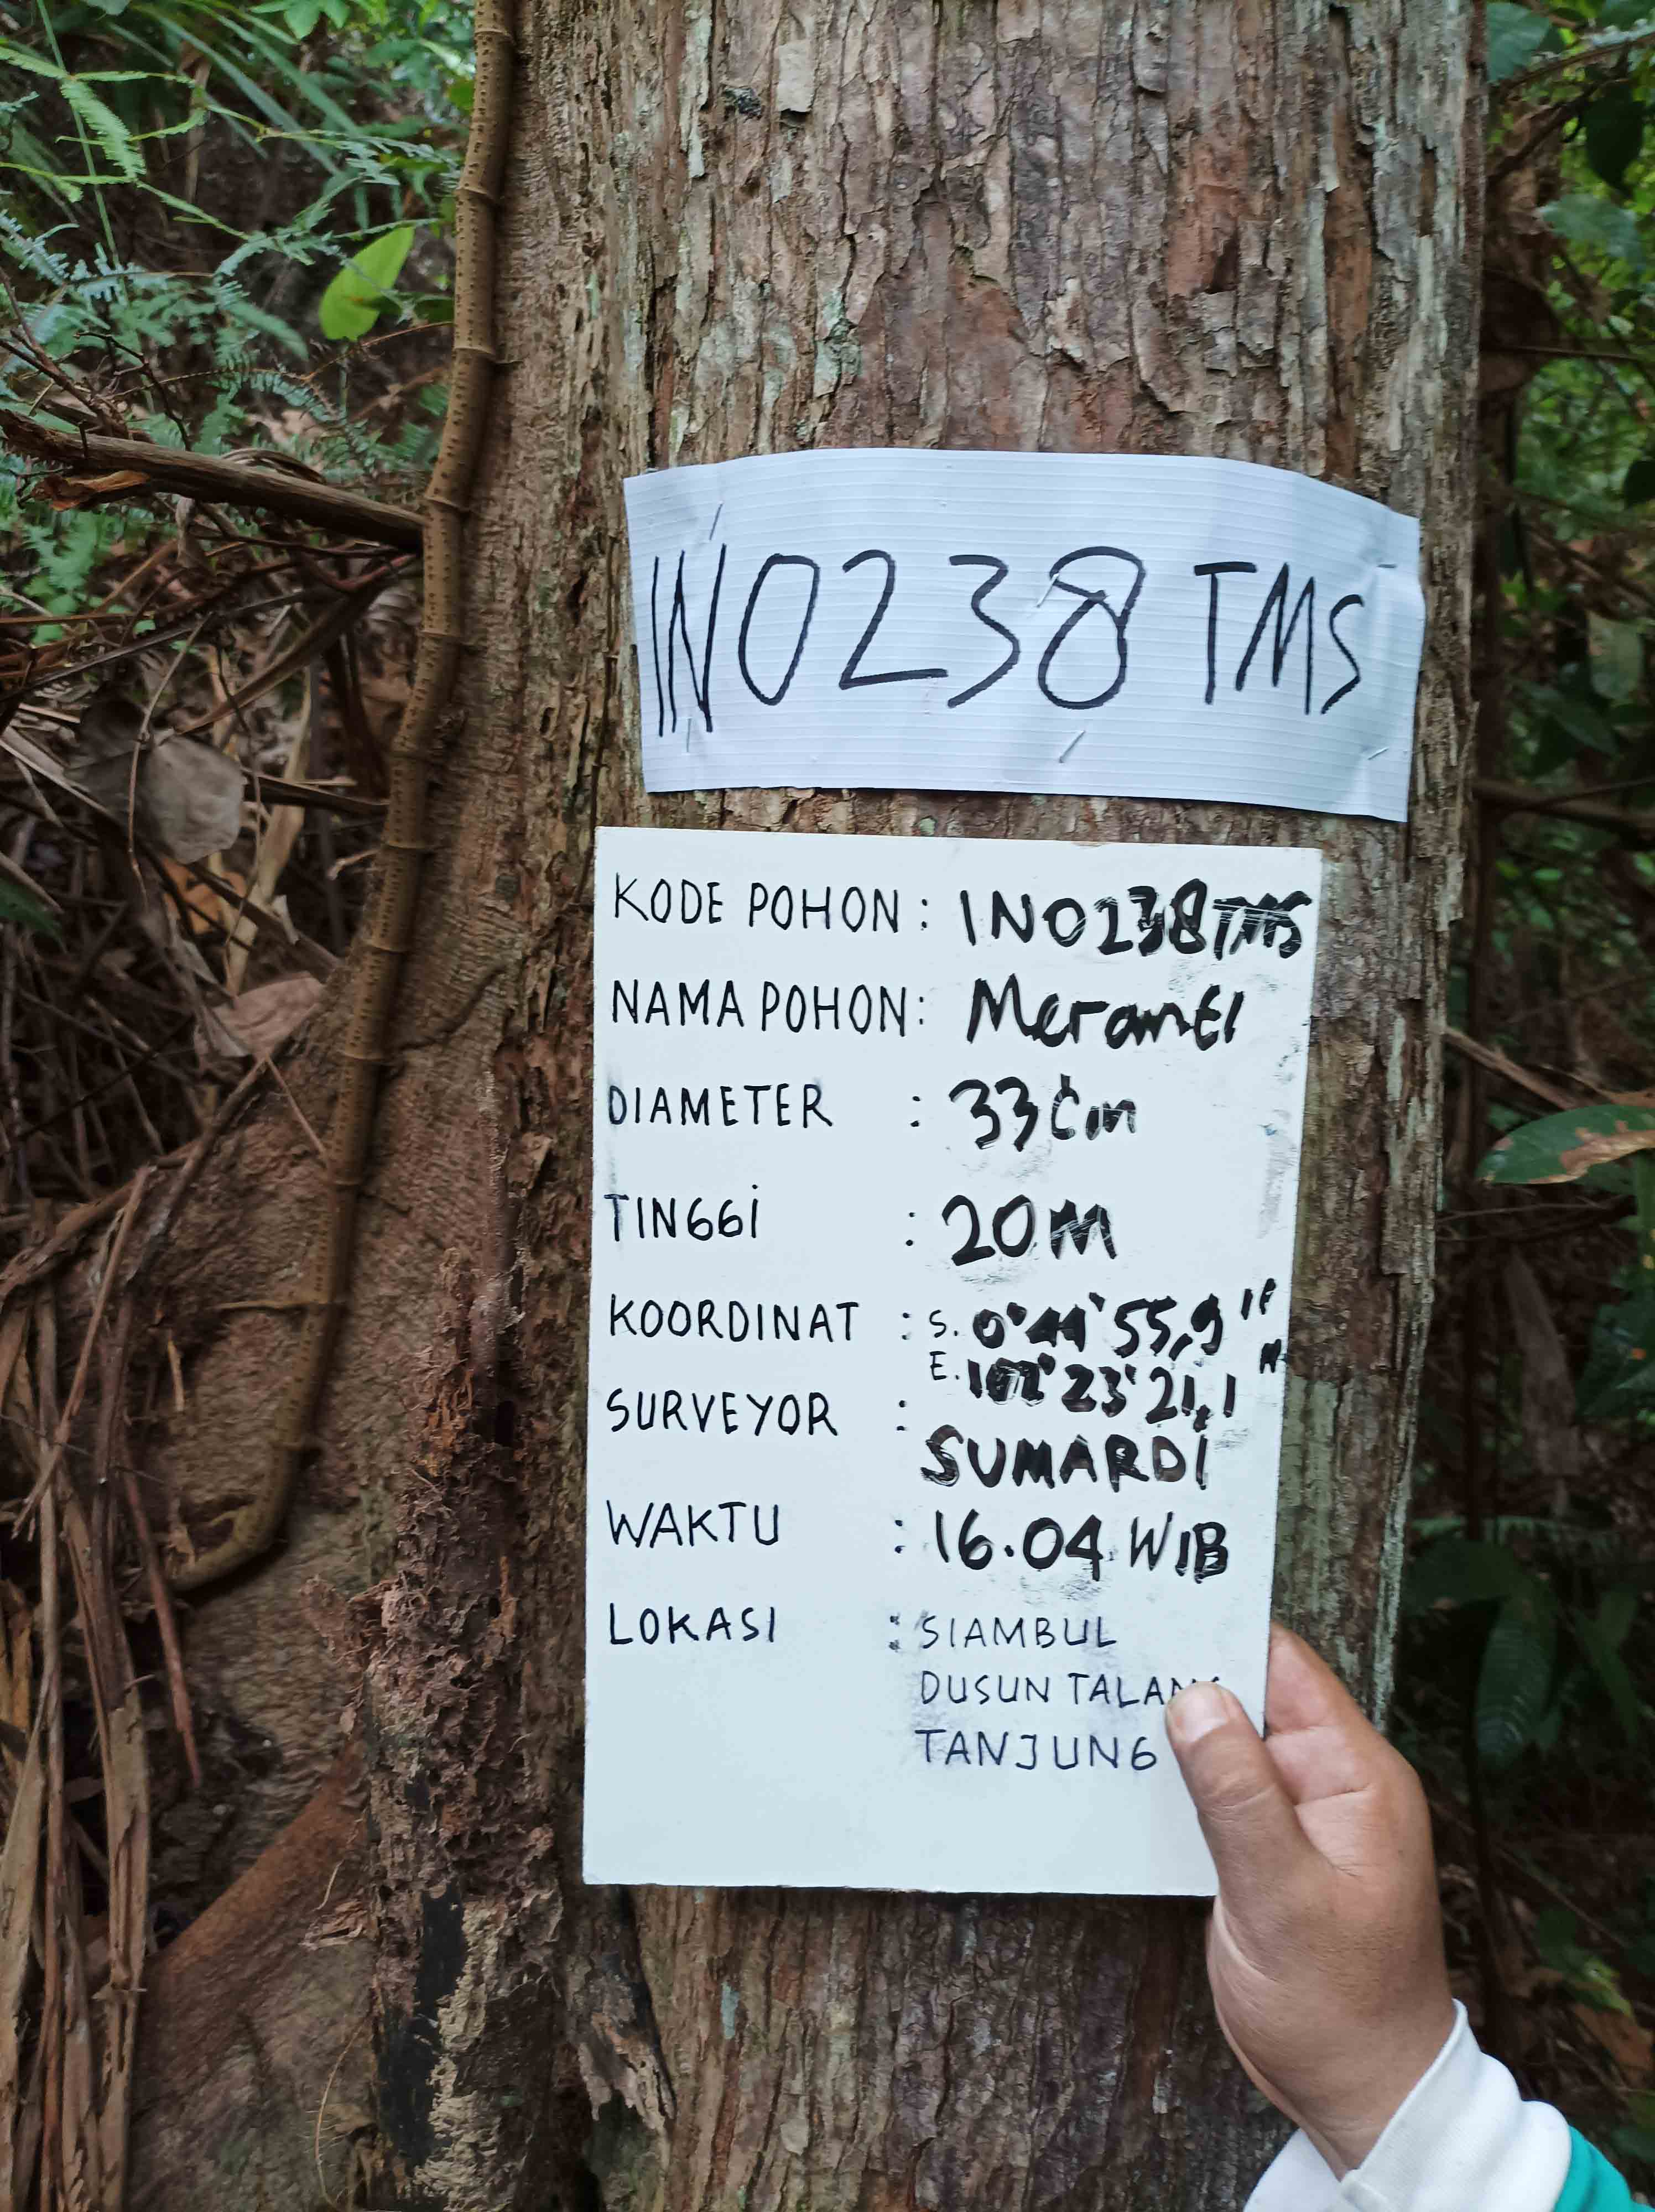 IN0238 TMS
KODE POHON : IN0238TMS
NAMA POHON : Meranti
DIAMETER : 33 Cm
TINGGI : 20 M
KOORDINAT : S. 0°44'55,9"
E. 102°23'21,1"
SURVEYOR : SUMARDI
WAKTU : 16.04 WIB
LOKASI : SIAMBUL
DUSUN TALANG
TANJUNG